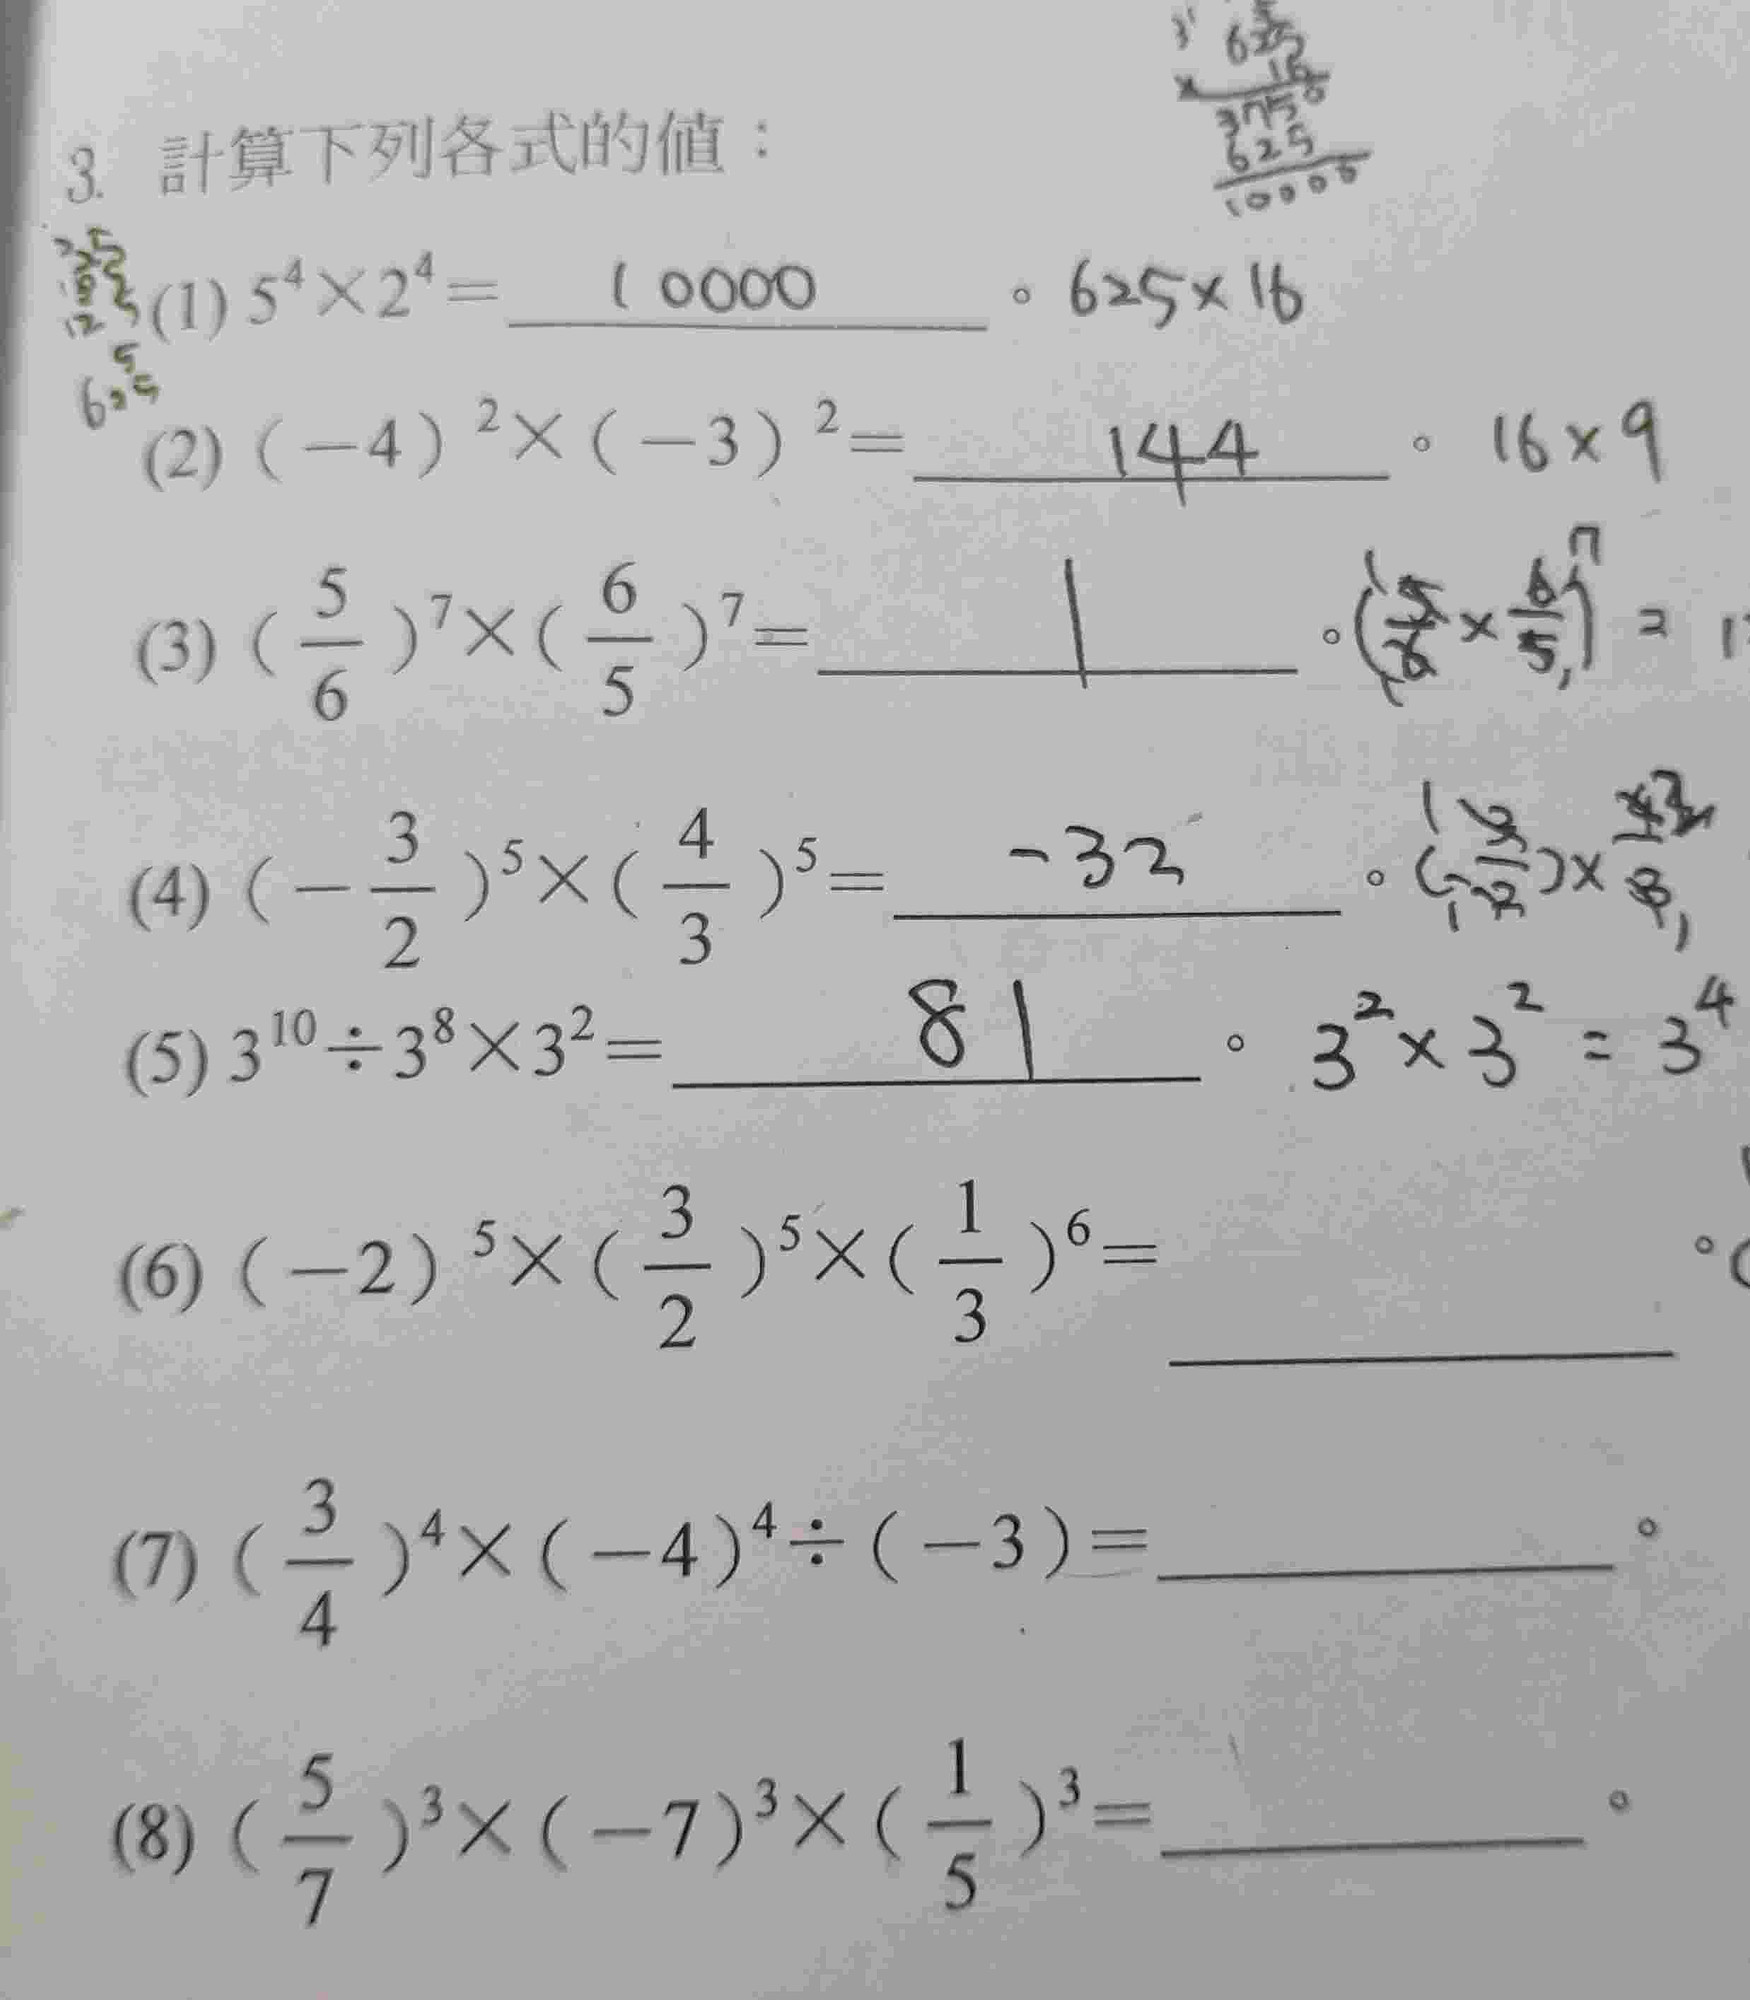 625
× 16
3750
625
10000
3. 計算下列各式的值：
(1) 5⁴×2⁴= 10000 。 625×16
625
(2) (-4)²×(-3)²= 144 。 16×9
(3) (5/6)⁷×(6/5)⁷= 1 。 (5/6×6/5)⁷ = 1
(4) (-3/2)⁵×(4/3)⁵= -32 。 (-3/2)×4/3
(5) 3¹⁰÷3⁸×3²= 81 。 3²×3² = 3⁴
(6) (-2)⁵×(3/2)⁵×(1/3)⁶= 。
(7) (3/4)⁴×(-4)⁴÷(-3)= 。
(8) (5/7)³×(-7)³×(1/5)³= 。